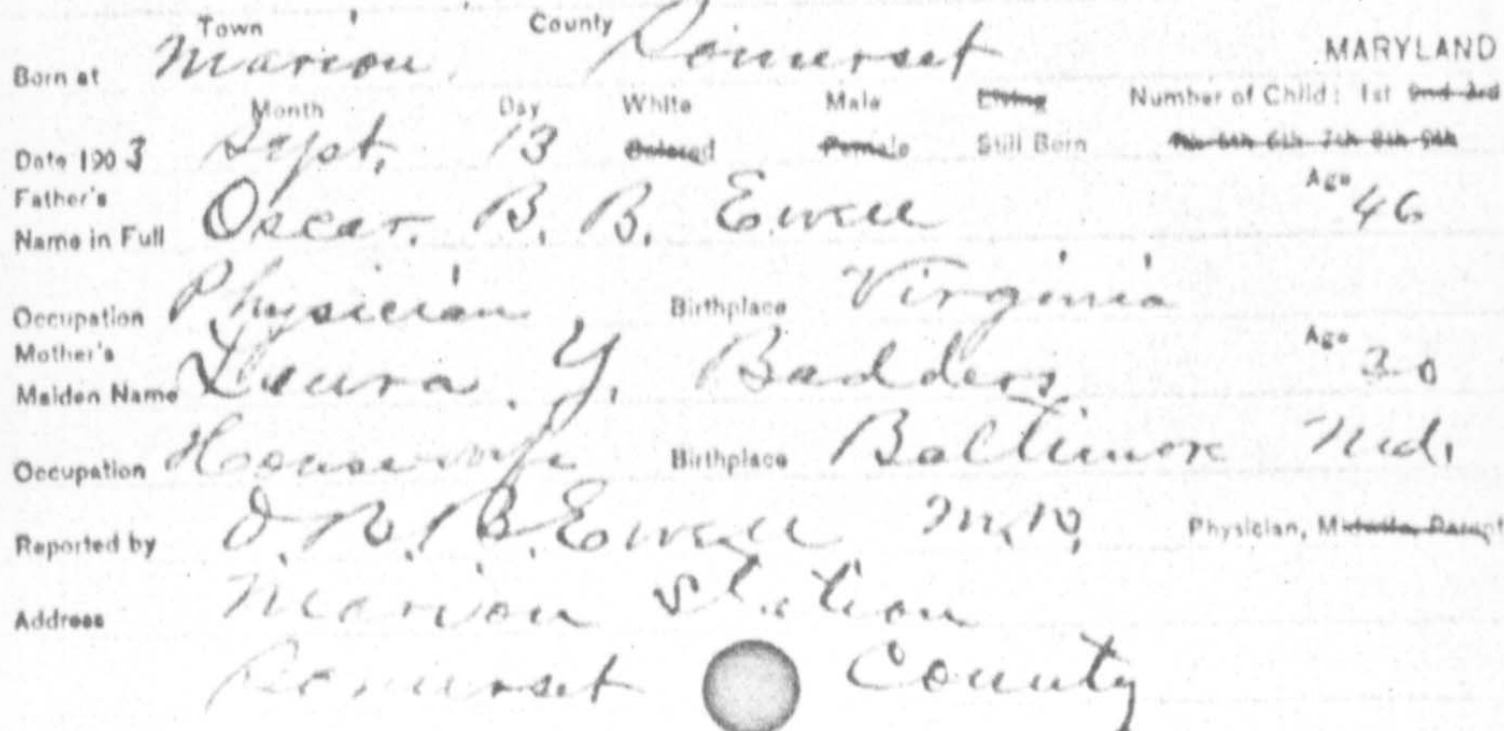 Town County
Born at Marion Somerset MARYLAND
Month Day White Male Living Number of Child: 1st 2nd 3rd
Date 1903 Sept. 13 Colored Female Still Born 4th 5th 6th 7th 8th 9th
Father's Age 46
Name in Full Oscar. B. B. Ewell
Occupation Physician Birthplace Virginia
Mother's Age 30
Maiden Name Laura Y. Badders
Occupation Housewife Birthplace Baltimore Md.
Reported by O. B. B. Ewell M.D. Physician, Midwife, Parent
Address Marion Station
Somerset County